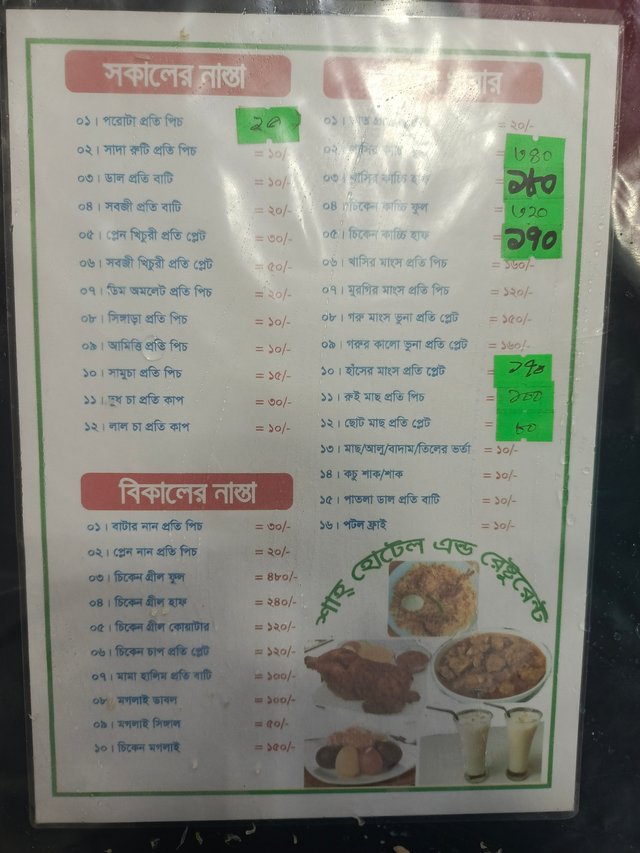 সকালের নাস্তা
০১। পরোটা প্রতি পিচ
০২। সাদা রুটি প্রতি পিচ = ১০/-
০৩। ডাল প্রতি বাটি = ১০/-
০৪। সবজী প্রতি বাটি = ২০/-
০৫। প্লেন খিচুরী প্রতি প্লেট = ৩০/-
০৬। সবজী খিচুরী প্রতি প্লেট = ৫০/-
০৭। ডিম অমলেট প্রতি পিচ = ২০/-
০৮। সিঙ্গাড়া প্রতি পিচ = ১০/-
০৯। আমিত্তি প্রতি পিচ = ১০/-
১০। সামুচা প্রতি পিচ = ১৫/-
১১। দুধ চা প্রতি কাপ = ৩০/-
১২। লাল চা প্রতি কাপ = ১০/-
বিকালের নাস্তা
০১। বাটার নান প্রতি পিচ = ৩০/-
০২। প্লেন নান প্রতি পিচ = ২০/-
০৩। চিকেন গ্রীল ফুল = ৪৮০/-
০৪। চিকেন গ্রীল হাফ = ২৪০/-
০৫। চিকেন গ্রীল কোয়াটার = ১২০/-
০৬। চিকেন চাপ প্রতি প্লেট = ১২০/-
০৭। মামা হালিম প্রতি বাটি = ১০০/-
০৮। মগলাই ডাবল = ১০০/-
০৯। মগলাই সিঙ্গাল = ৫০/-
১০। চিকেন মগলাই = ১৫০/-
০১। ভাত = ২০/-
০২। খাসির কাচ্চি ফুল = ৩৪০
০৩। খাসির কাচ্চি হাফ =
০৪। চিকেন কাচ্চি ফুল = ৩২০
০৫। চিকেন কাচ্চি হাফ ১৭০
০৬। খাসির মাংস প্রতি পিচ = ১৬০/-
০৭। মুরগির মাংস প্রতি পিচ = ১২০/-
০৮। গরু মাংস ভুনা প্রতি প্লেট = ১৫০/-
০৯। গরুর কালো ভুনা প্রতি প্লেট = ১৬০/-
১০। হাঁসের মাংস প্রতি প্লেট =
১১। রুই মাছ প্রতি পিচ =
১২। ছোট মাছ প্রতি প্লেট =
১৩। মাছ/আলু/বাদাম/তিলের ভর্তা = ১০/-
১৪। কচু শাক/শাক = ১০/-
১৫। পাতলা ডাল প্রতি বাটি = ১০/-
১৬। পটল ফ্রাই = ১০/-
শাহ্ হোটেল এন্ড রেষ্টুরেন্ট